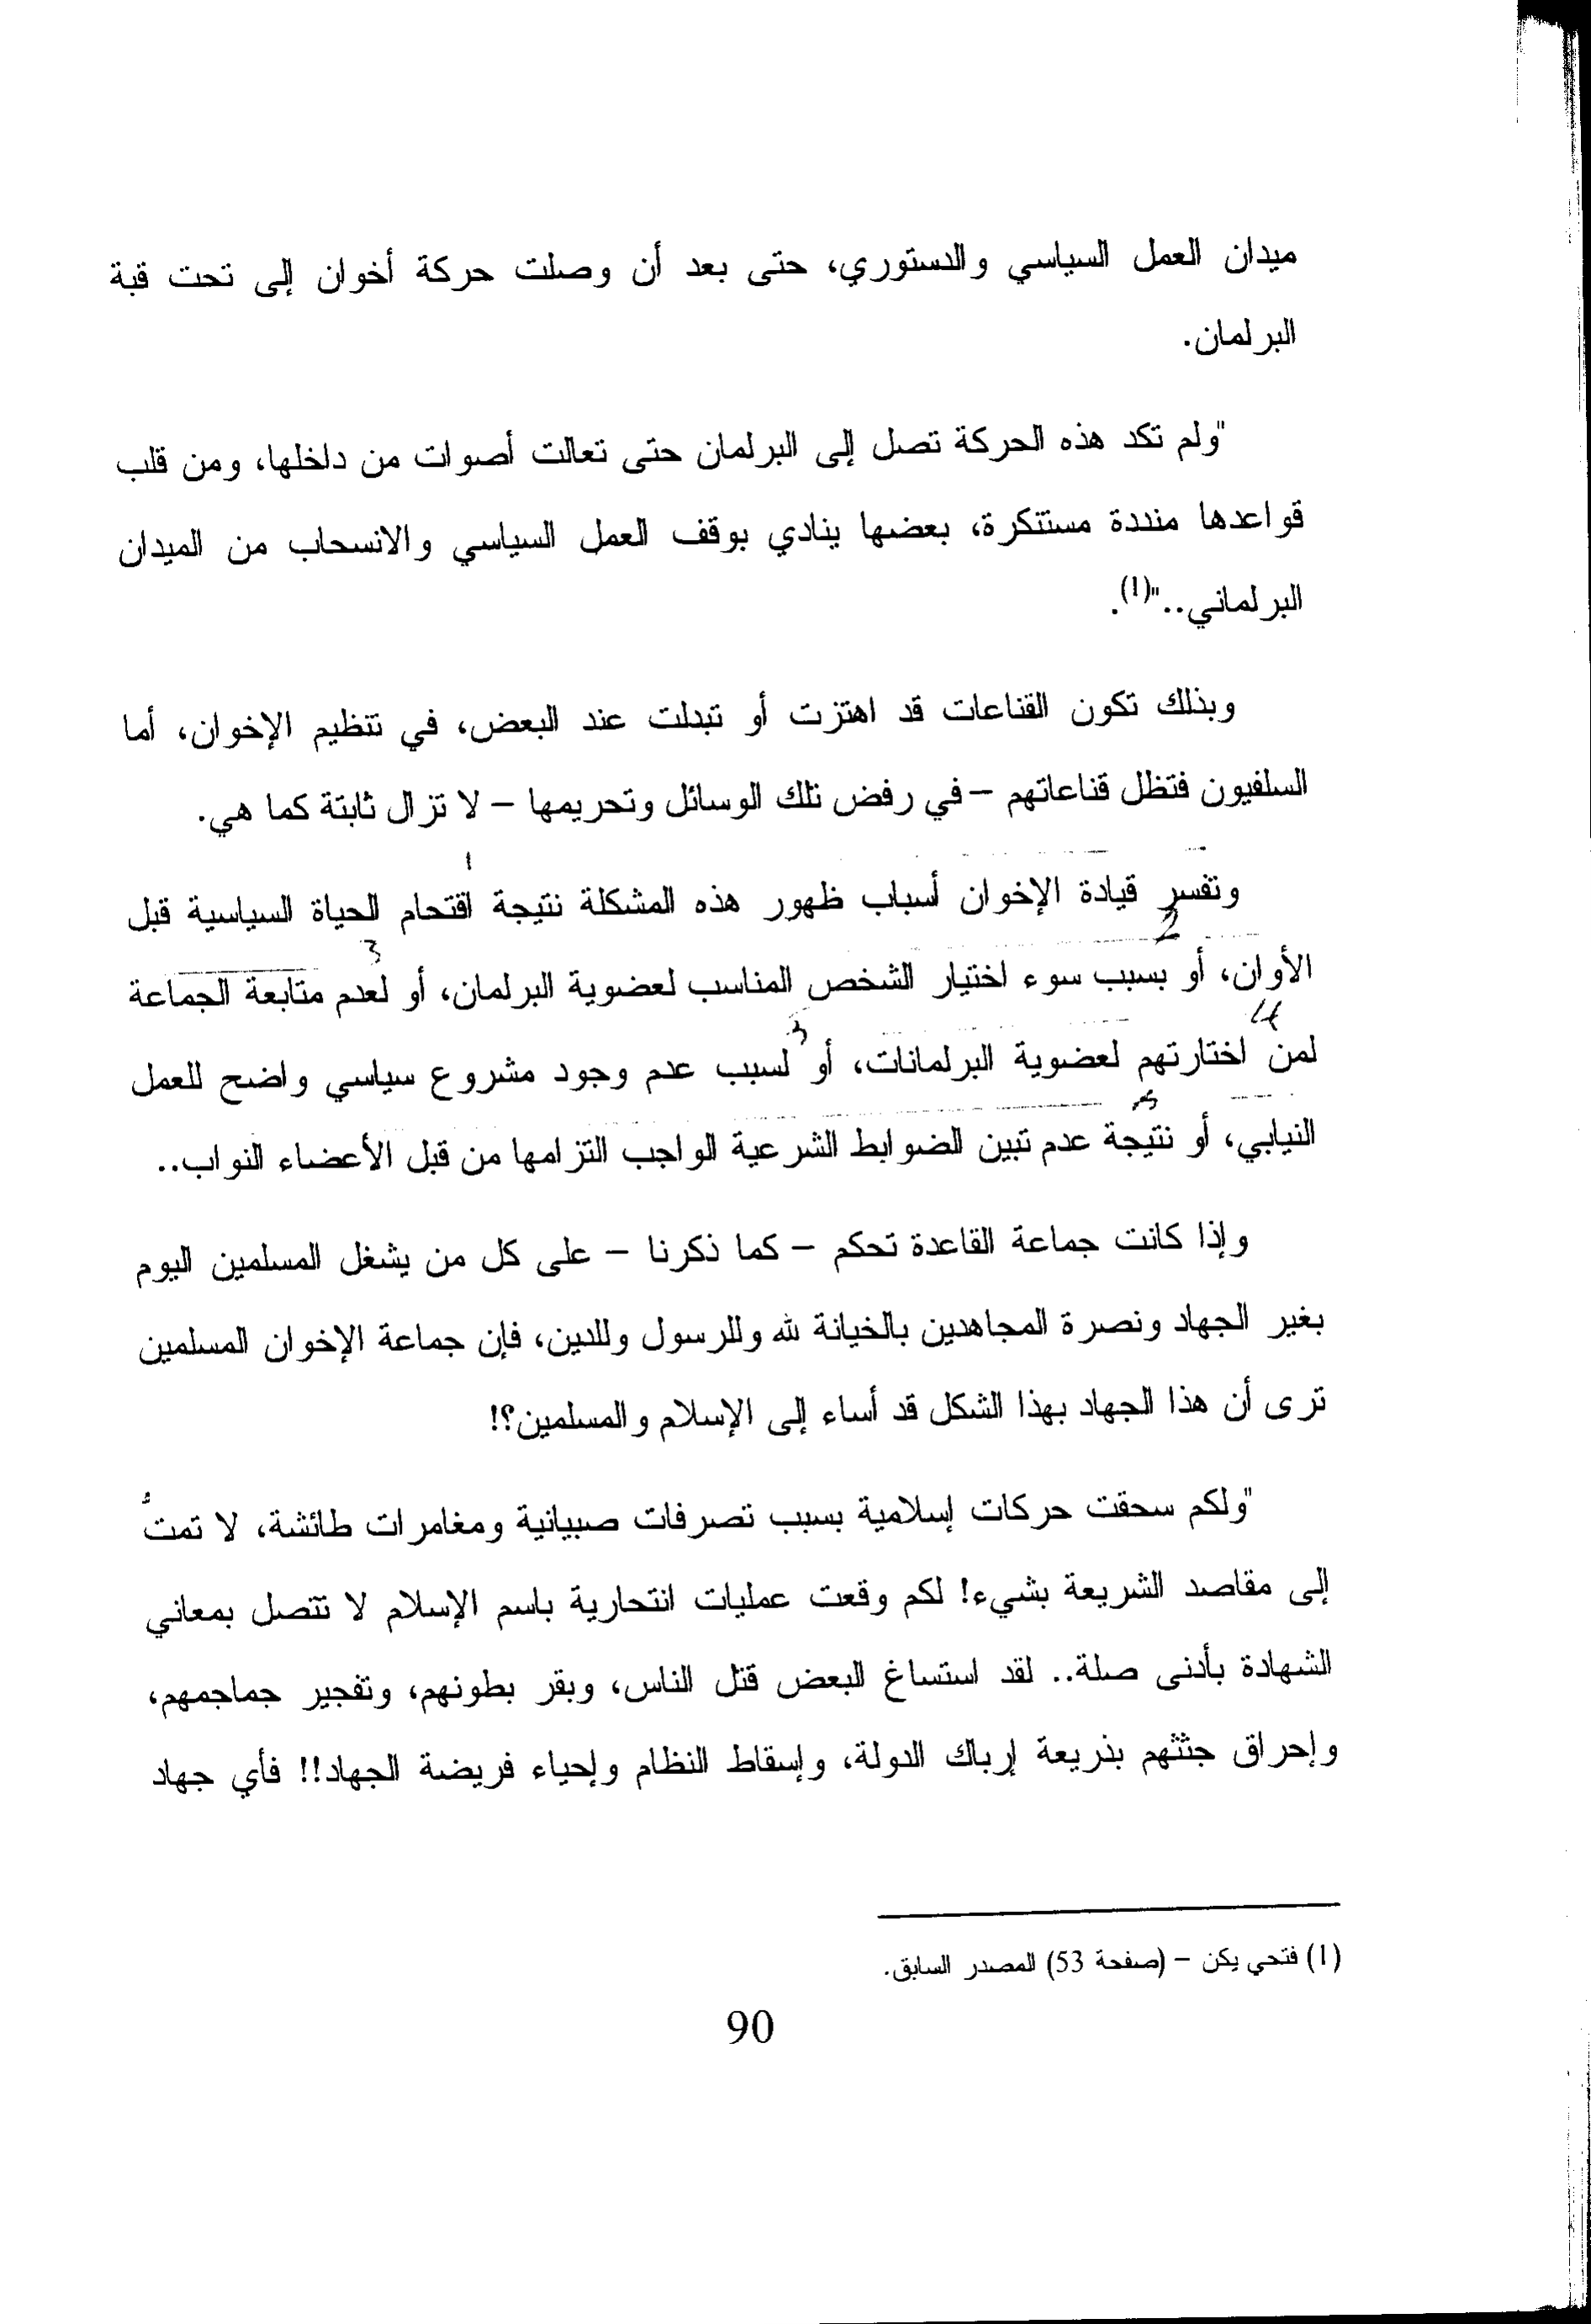 ميدان العمل السياسي والدستوري، حتى بعد أن وصلت حركة أخوان إلى تحت قبة
البرلمان.
"ولم تكد هذه الحركة تصل إلى البرلمان حتى تعالت أصوات من داخلها، ومن قلب
قواعدها منددة مستنكرة، بعضها ينادي بوقف العمل السياسي والانسحاب من الميدان
البرلماني.."(1).
وبذلك تكون القناعات قد اهتزت أو تبدلت عند البعض، في تنظيم الإخوان، أما
السلفيون فتظل قناعاتهم – في رفض تلك الوسائل وتحريمها – لا تزال ثابتة كما هي.
1
وتفسر قيادة الإخوان أسباب ظهور هذه المشكلة نتيجة اقتحام الحياة السياسية قبل
2 3
الأوان، أو بسبب سوء اختيار الشخص المناسب لعضوية البرلمان، أو لعدم متابعة الجماعة
4 3
لمن اختارتهم لعضوية البرلمانات، أو لسبب عدم وجود مشروع سياسي واضح للعمل
النيابي، أو نتيجة عدم تبين الضوابط الشرعية الواجب التزامها من قبل الأعضاء النواب..
وإذا كانت جماعة القاعدة تحكم – كما ذكرنا – على كل من يشغل المسلمين اليوم
بغير الجهاد ونصرة المجاهدين بالخيانة لله وللرسول وللدين، فإن جماعة الإخوان المسلمين
ترى أن هذا الجهاد بهذا الشكل قد أساء إلى الإسلام والمسلمين؟!
"ولكم سحقت حركات إسلامية بسبب تصرفات صبيانية ومغامرات طائشة، لا تمتُ
إلى مقاصد الشريعة بشيء! لكم وقعت عمليات انتحارية باسم الإسلام لا تتصل بمعاني
الشهادة بأدنى صلة.. لقد استساغ البعض قتل الناس، وبقر بطونهم، وتفجير جماجمهم،
وإحراق جثثهم بذريعة إرباك الدولة، وإسقاط النظام وإحياء فريضة الجهاد!! فأي جهاد
(1) فتحي يكن – (صفحة 53) المصدر السابق.
90